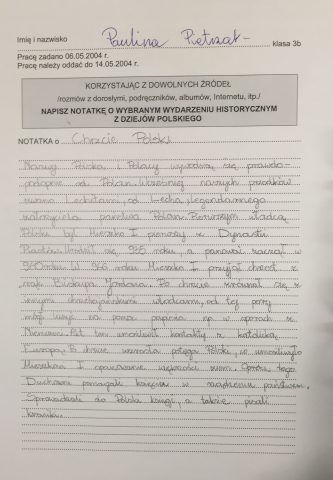 Imię i nazwisko Paulina Pietrzak klasa 3b
Pracę zadano 06.05.2004 r.
Pracę należy oddać do 14.05.2004 r.
KORZYSTAJĄC Z DOWOLNYCH ŹRÓDEŁ
/rozmów z dorosłymi, podręczników, albumów, Internetu, itp./
NAPISZ NOTATKĘ O WYBRANYM WYDARZENIU HISTORYCZNYM
Z DZIEJÓW POLSKIEGO
NOTATKA o Chrzcie Polski
Nazwy Polska i Polacy wywodzą się prawdo-
podobnie od Polan. Wcześniej naszych przodków
zwano Lechitami, od Lecha, legendarnego
założyciela państwa Polan. Pierwszym władcą
Polski był Mieszko I pierwszy z Dynastii
Piastów. Urodził się 935 roku, a panować zaczął w
960 roku. W 966 roku Mieszko I przyjął chrzest z
rąk Biskupa Jordana. Po chrzcie zrównał się z
innymi chrześcijańskimi władcami, od tej pory
mógł liczyć na pomoc papieża np. w sporach z
Niemcami. Był ten umożliwił kontakty z katolicką
Europą. Po chrzcie wzrosła potęga Polski, co umożliwiło
Mieszkowi I opanowanie większości ziem. Oprócz tego
Duchowni pomagali księciu w rządzeniu państwem.
Sprowadzali do Polski księgi, a także pisali
kroniki.